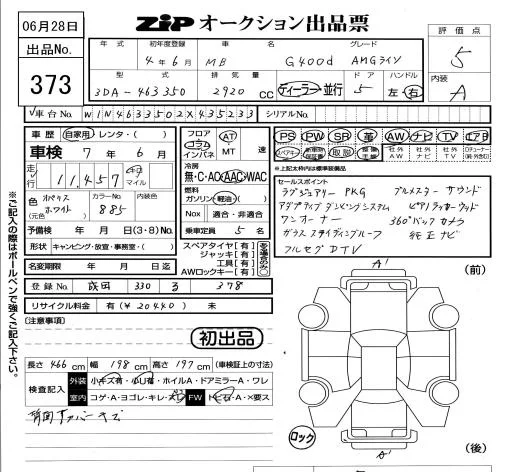 06月28日
ZIP オークション出品票
出品No.
373
評価点
5
内装
A
年式 初年度登録 車名 グレード
4年6月 MB G400d AMGライン
型式 排気量 ドア ハンドル
3DA-463350 2920 CC ディーラー・並行 5 左・右
車台No. W1N4633502X435233 シリアルNo.
車歴 自家用・レンタ・( )
車検 7年6月
走行 11,457 km マイル
色 ポラリスホワイト
(元色)
カラーNo. 885
内装色
予備検 年 月 日(3・8)No.
形状 キャンピング・放宣・事務室・( )
名変期限 年 月 日迄
登録No. 成田 330 ろ 378
リサイクル料金 有(¥20440) 未
フロア コラム インパネ
AT MT 速
冷房 無・C・AC・AAC・WAC
燃料 ガソリン・軽油・( )
Nox 適合・非適合
乗車定員 5名
スペアタイヤ[有・]
ジャッキ[有・]
工具[有・]
AWロックキー[有・]
PS PW SR 革 AW ナビ TV エアB
スペアキー 取説
社外 AW 社外 ナビ 社外 TV
※上記太枠内は標準装備品
セールスポイント
ラグジュアリー PKG ブルメスター サウンド
アダプティブダンピングシステム ヒーター
ワンオーナー 360°バックカメラ
ガラススライディングルーフ 純正ナビ
フルセグDTV
※ご記入の際はボールペンで強くご記入下さい。
[注意事項]
初出品
長さ 466 cm 幅 198 cm 高さ 197 cm (車検証上の寸法)
検査記入
外装 小キズ有・小凹有・ホイルA・ドアミラーA・ワレ
室内 コゲ・A・ヨゴレ・キレ・スレ FW トビ石・A・×要ス
前回 カバー キズ
(前)
A'
ロック
A'
(後)